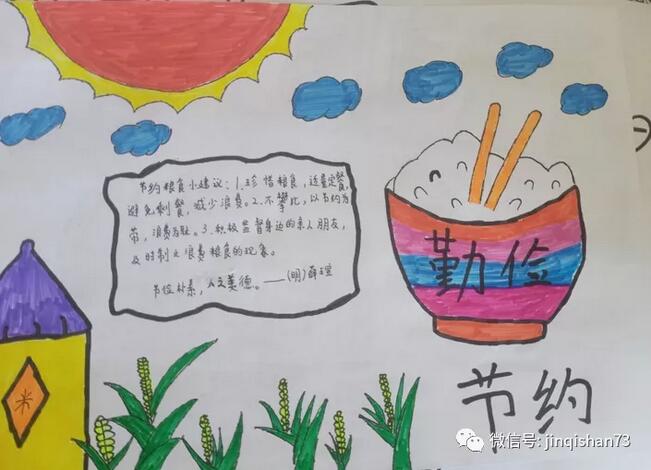 节约粮食小建议：1.珍惜粮食，适量定餐，
避免剩餐，减少浪费。2.不攀比，以节约为
荣，浪费为耻。3.积极监督身边的亲人朋友，
及时制止浪费粮食的现象。
节俭朴素，人之美德。——(明)薛瑄
勤俭
节约
米
微信号: jinqishan73